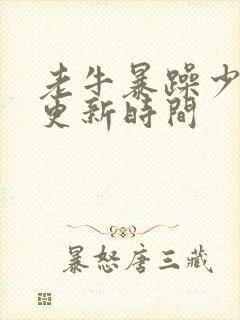 老牛暴躁少
更新時間
暴怒唐三藏